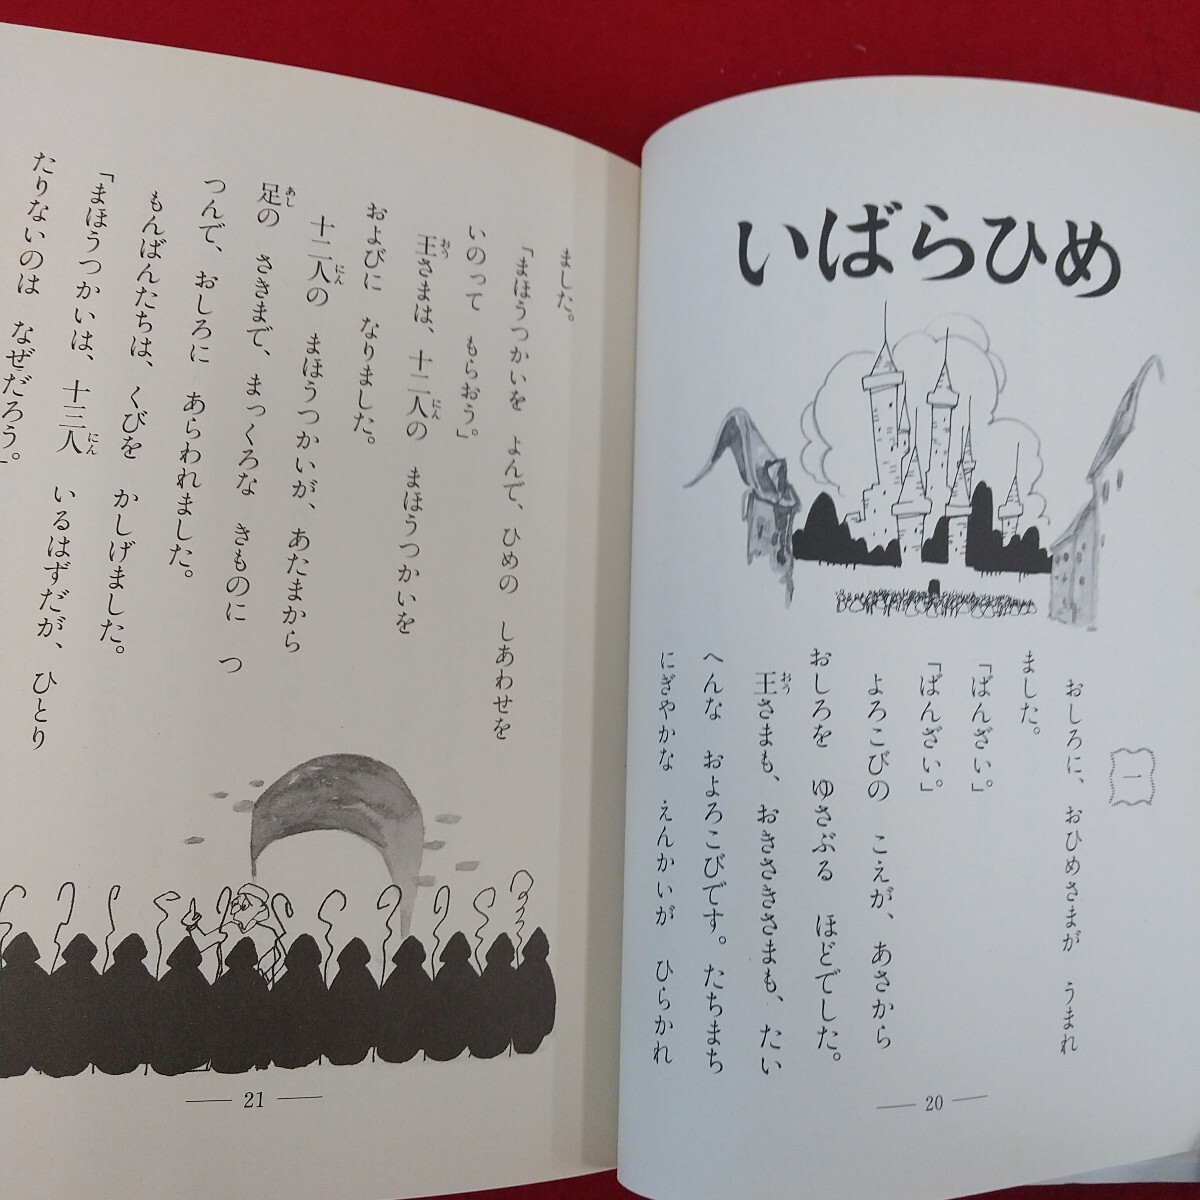 いばらひめ
一
おしろに、おひめさまが うまれ
ました。
「ばんざい。」
「ばんざい。」
よろこびの こえが、あさから
おしろを ゆさぶる ほどでした。
王さまも、おきさきさまも、たい
へんな およろこびです。たちまち
にぎやかな えんかいが ひらかれ
20
ました。
「まほうつかいを よんで、ひめの しあわせを
いのって もらおう。」
王さまは、十二人の まほうつかいを
および​に なりました。
十二人の まほうつかいが、あたまから
足の さきまで、まっくろな きものに つ
つんで、おしろに あらわれました。
もんばんたちは、くびを かしげました。
「まほうつかいは、十三人 いるはずだが、ひとり
たりないのは なぜだろう。」
21